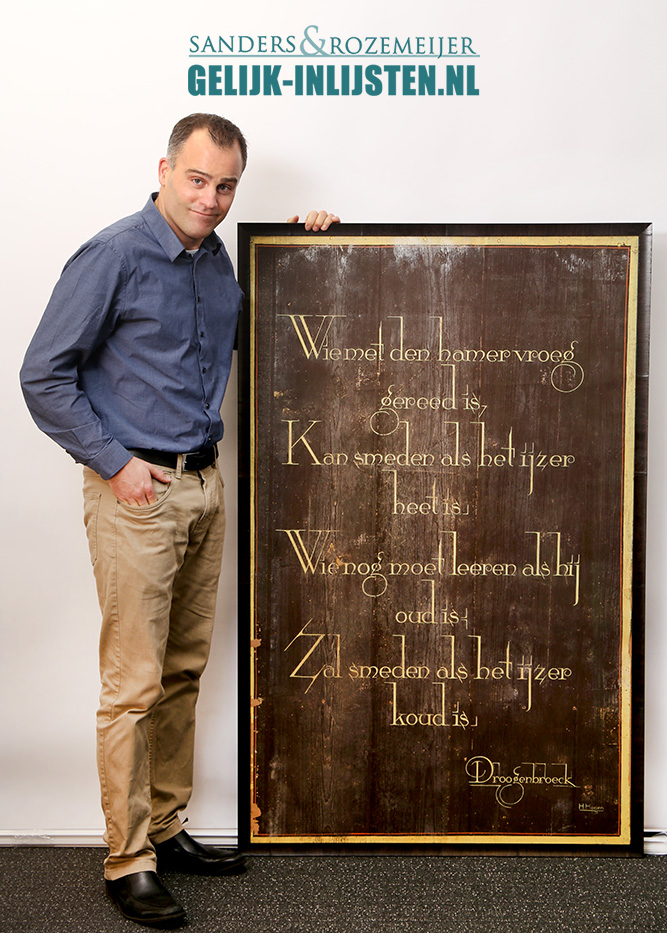 SANDERS&ROZEMEIJER
GELIJK-INLIJSTEN.NL
Wie met den hamer vroeg
gereed is,
Kan smeden als het ijzer
heet is.
Wie nog moet leeren als hij
oud is;
Zal smeden als het ijzer
koud is.
Droogenbroeck